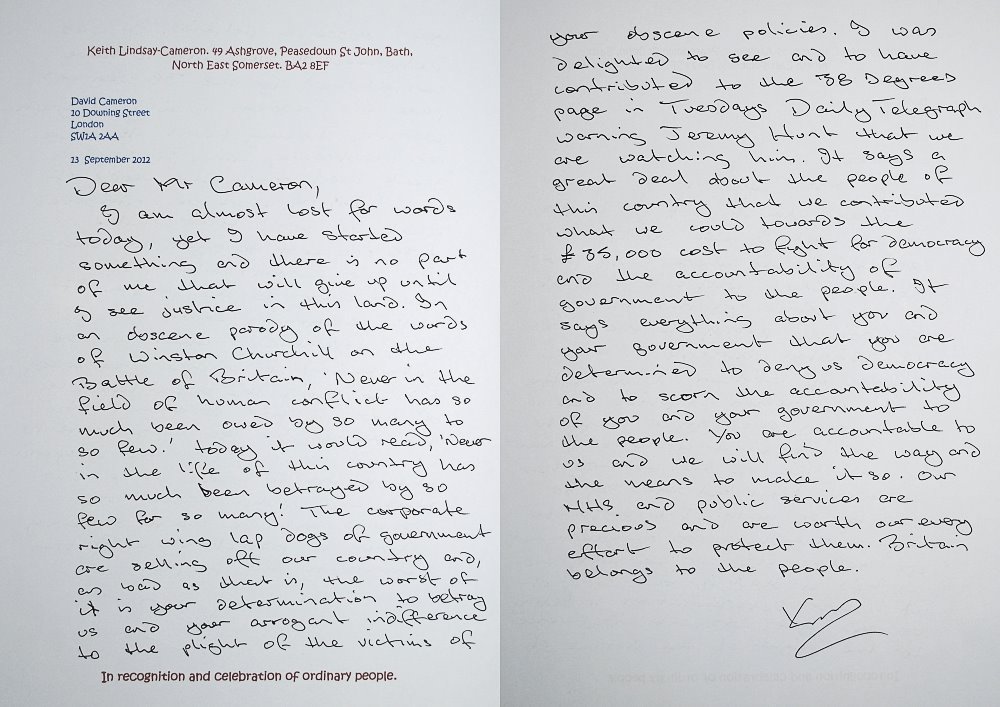 Keith Lindsay-Cameron. 49 Ashgrove, Peasedown St John, Bath,
North East Somerset. BA2 8EF
David Cameron
10 Downing Street
London
SW1A 2AA
13 September 2012
Dear Mr Cameron,
I am almost lost for words
today, yet I have started
something and there is no part
of me that will give up until
I see justice in this land. In
an obscene parody of the words
of Winston Churchill on the
Battle of Britain, 'Never in the
field of human conflict has so
much been owed by so many to
so few.' today it would read, 'Never
in the life of this country has
so much been betrayed by so
few for so many.' The corporate
right wing lap dogs of government
are selling off our country and,
as bad as that is, the worst of
it is your determination to betray
us and your arrogant indifference
to the plight of the victims of
In recognition and celebration of ordinary people.
your obscene policies. I was
delighted to see and to have
contributed to the 38 Degrees
page in Tuesdays Daily Telegraph
warning Jeremy Hunt that we
are watching him. It says a
great deal about the people of
this country that we contributed
what we could towards the
£35,000 cost to fight for democracy
and the accountability of
government to the people. It
says everything about you and
your government that you are
determined to deny us democracy
and to scorn the accountability
of you and your government to
the people. You are accountable to
us and we will find the way and
the means to make it so. Our
NHS and public services are
precious and are worth our every
effort to protect them. Britain
belongs to the people.